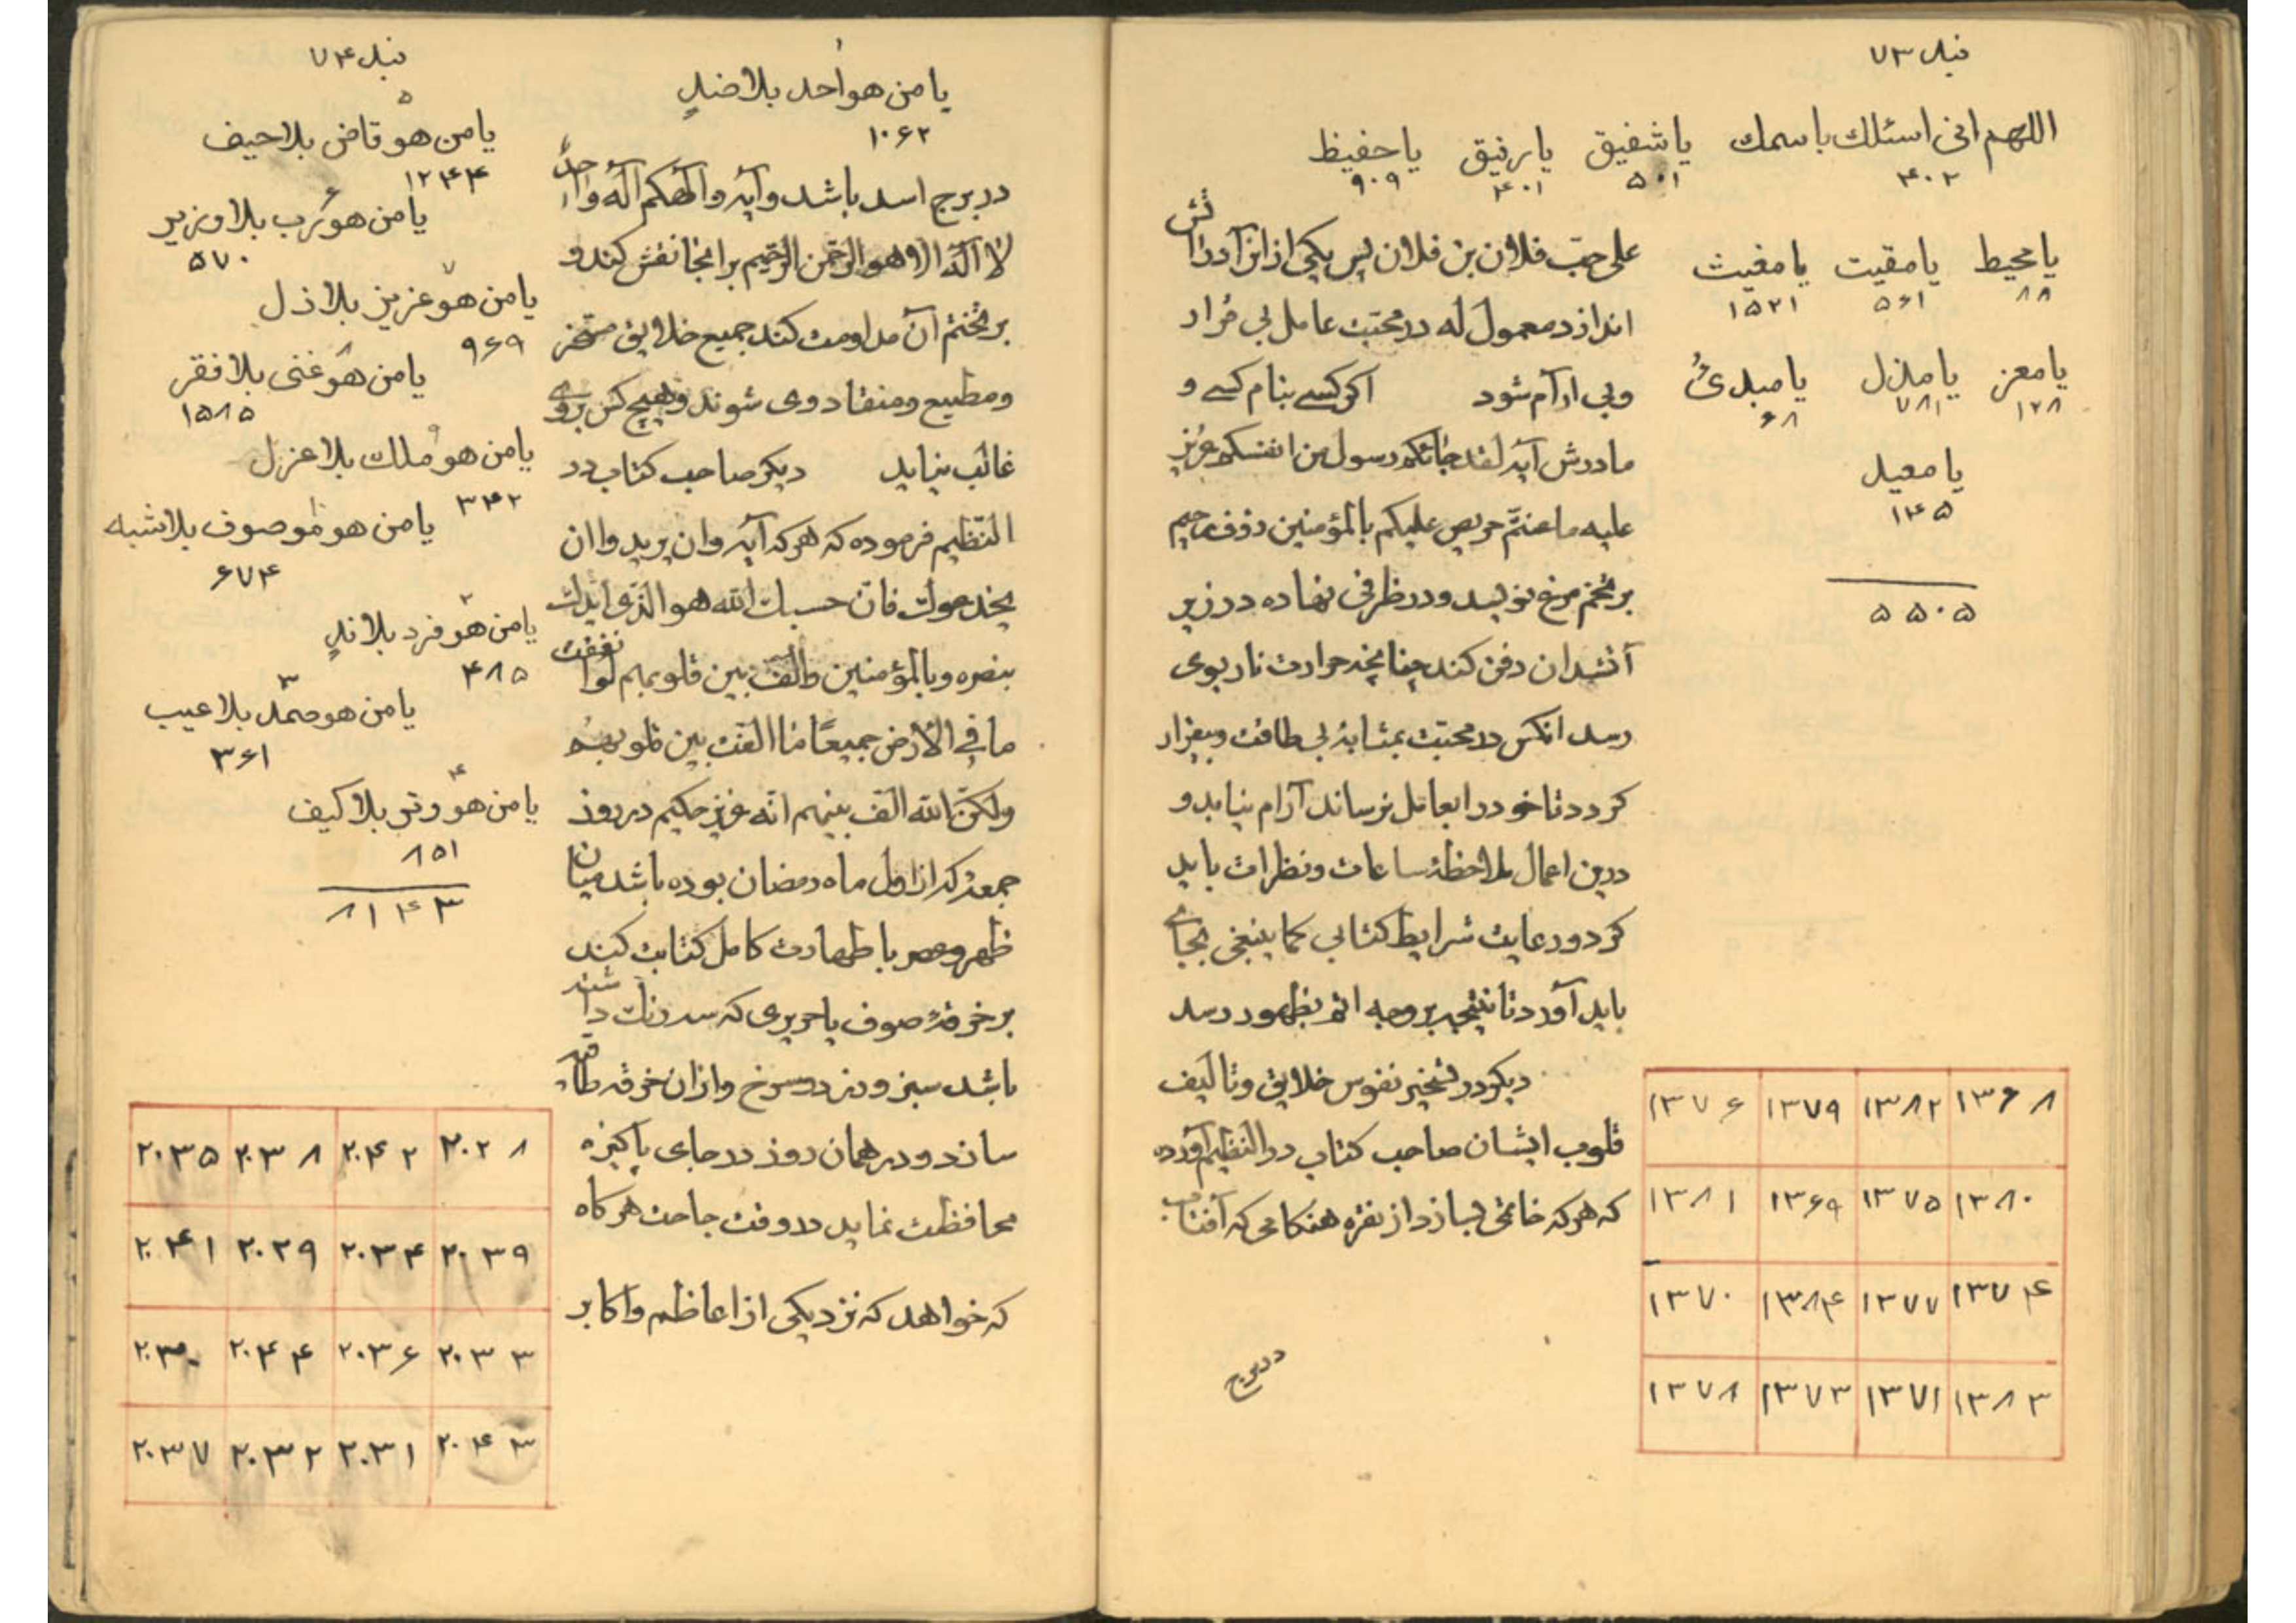 نبد ۷۳
اللهم انی اسئلك باسمك یا شفیق یا رفیق یا حفیظ
۴۰۲ ۵۰۱ ۴۰۱ ۹۰۹
یا محیط یا مقیت یا مغیث
۸۸ ۵۶۱ ۱۵۲۱
یا معز یا مذل یا مبدئ
۱۲۸ ۷۸۱ ۶۸
یا معید
۱۴۵
۵۵۰۵
علی حب فلان بن فلان پس یکی از انرا در آتش
اندازد معمول له در محبت عامل بی قرار
و بی ارآم شود اگر کسے بنام کسے و
مادرش آیه لقد جائكم رسول من انفسكم عزیز
علیه ما عنتم حریص علیكم بالمؤمنین رؤف رحیم
بر تخم مرغ نویسد و در ظرفی نهاده در زیر
آتشدان دفن کند چنانچه حرارت نار بوی
رسد انکس در محبت بمثابهٔ بی طاقت و بیقرار
کردد تا خود را بعامل نرساند آرام نیابد و
درین اعمال ملاحظهٔ ساعات و نظرات باید
کرد و رعایت شرایط کتابی کما ینبغی بجاے
باید آورد تا نتیجه بر وجه اتم بظهور رسد
دیکر در تسخیر نفوس خلایق و تالیف
قلوب ایشان صاحب کتاب در النظیم آورده
که هر که خاتمی بسازد از نقره هنکامی که آفتاب
در برج
۱۳۶۸ ۱۳۸۲ ۱۳۷۹ ۱۳۷۶
۱۳۸۰ ۱۳۷۵ ۱۳۶۹ ۱۳۸۱
۱۳۷۴ ۱۳۷۷ ۱۳۸۴ ۱۳۷۰
۱۳۸۳ ۱۳۷۱ ۱۳۷۳ ۱۳۷۸
نبد ۷۴
۱
یا من هو احد بلا ضدٍ
۱۰۶۲
در برج اسد باشد و آیه و آلهكم اله واحدٌ
لا آله الا هو الرحمن الرحیم بر انجا نقش کند و
بر تختم آن مداومت کند جمیع خلایق مسخر
و مطیع و منقاد وی شوند و هیچ کس بروے
غالب نیاید دیکر صاحب کتاب در
النظیم فرموده که هر که آیه وان یریدوا ان
یخدعوك فان حسبك الله هو الذی ایدك
بنصره وبالمؤمنین والف بین قلوبهم لو انفقت
ما فی الارض جمیعًا ما الفت بین قلوبهم
ولكن الله الف بینهم انه عزیز حكیم در روز
جمعهٔ که از اول ماه رمضان بوده باشد میان
ظهر و عصر با طهارت کامل کتابت کند
بر خرقهٔ صوف یا حریری که سه رنك داشته
باشد سبز و زرد و سرخ و ازان خرقه طاقیه
سازد و در همان روز در جای پاکیزه
محافظت نماید در وقت حاجت هر کاه
که خواهد که نزد یکی از اعاظم و اکابر
۵
یا من هو قاض بلا حیف
۱۲۴۴
۶
یا من هو رب بلا وزیر
۵۷۰
۷
یا من هو عزیز بلا ذل
۹۶۹
۸
یا من هو غنی بلا فقر
۱۵۸۵
۹
یا من هو ملك بلا عزل
۳۴۲
یا من هو موصوف بلا شبه
۶۷۴
۲
یا من هو فرد بلا ندٍ
۴۸۵
۳
یا من هو صمد بلا عیب
۳۶۱
۴
یا من هو وتر بلا کیف
۸۵۱
۸۱۴۳
۲۰۲۸ ۲۰۴۲ ۲۰۳۸ ۲۰۳۵
۲۰۳۹ ۲۰۳۴ ۲۰۲۹ ۲۰۴۱
۲۰۳۳ ۲۰۳۶ ۲۰۴۴ ۲۰۳۰
۲۰۴۳ ۲۰۳۱ ۲۰۳۲ ۲۰۳۷